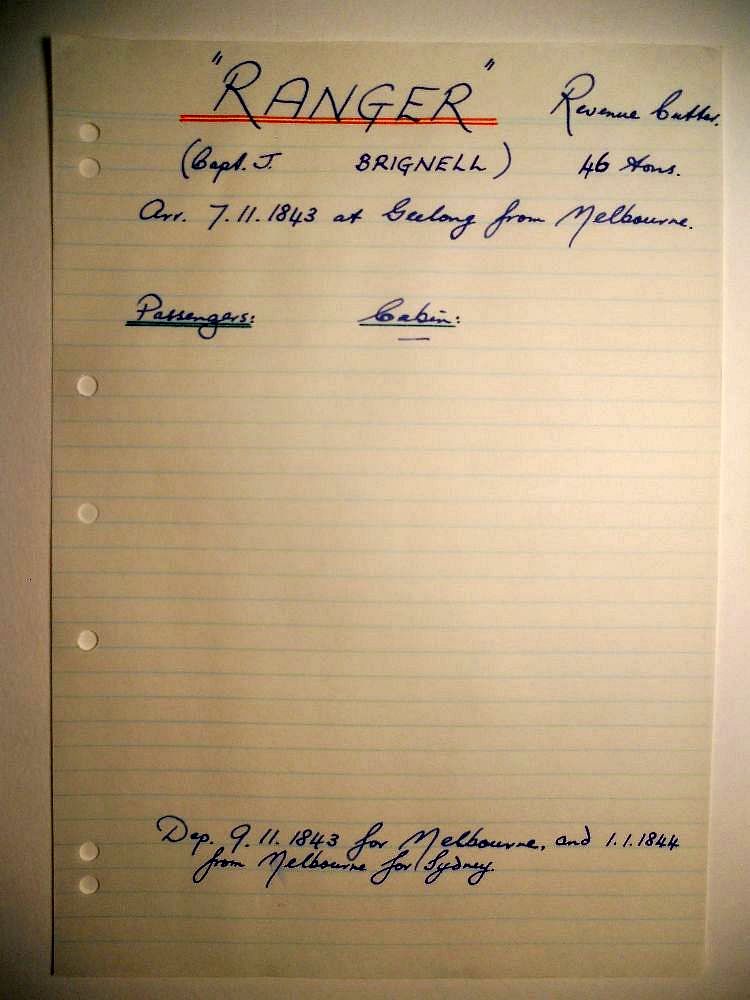 "RANGER" Revenue Cutter.
(Capt. J. BRIGNELL) 46 tons.
Arr. 7.11.1843 at Geelong from Melbourne.
Passengers: Cabin:
—
Dep. 9.11.1843 for Melbourne, and 1.1.1844
from Melbourne for Sydney.